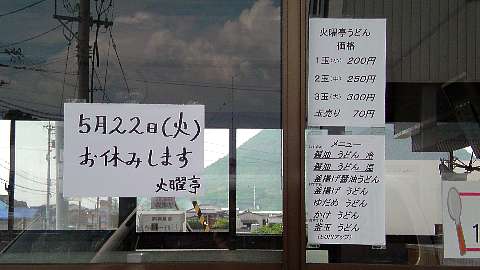 5月22日(火)
お休みします
火曜亭
火曜亭うどん
価格
1玉(小) 200円
2玉(中) 250円
3玉(大) 300円
玉売り 70円
メニュー
醤油 うどん 冷
醤油 うどん 温
釜揚げ醤油うどん
釜揚げ うどん
ゆだめ うどん
かけ うどん
釜玉 うどん
(50円アップ)
1